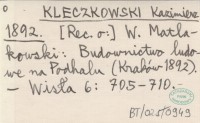 0
KLECZKOWSKI Kazimierz
1892. [Rec. o:] W. Matla-
kowski: Budownictwo ludo-
we na Podhalu (Kraków 1892).
— Wisła 6: 705-710.—